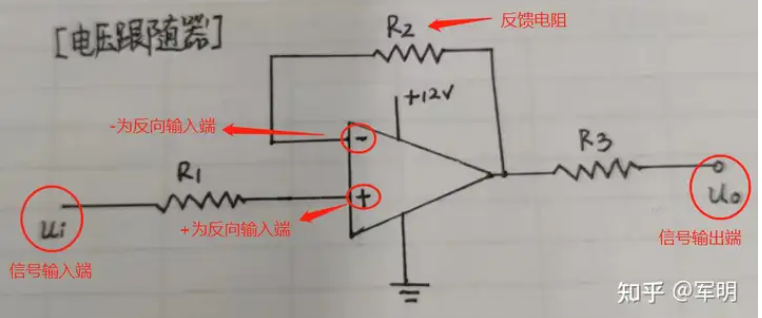 [电压跟随器]
R2
反馈电阻
+12V
-为反向输入端
-
R1
R3
+
ui
+为反向输入端
uo
信号输入端
信号输出端
知乎 @军明